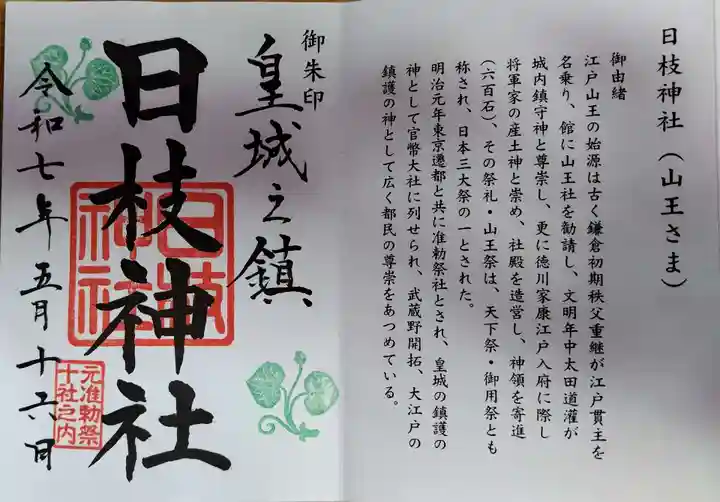 日枝神社（山王さま）
御由緒
江戸山王の始源は古く鎌倉初期秩父重継が江戸貫主を
名乗り、館に山王社を勧請し、文明年中太田道灌が
城内鎮守神と尊崇し、更に徳川家康江戸入府に際し
将軍家の産土神と崇め、社殿を造営し、神領を寄進
（六百石）、その祭礼・山王祭は、天下祭・御用祭とも
称され、日本三大祭の一とされた。
明治元年東京遷都と共に准勅祭社とされ、皇城の鎮護の
神として官幣大社に列せられ、武蔵野開拓、大江戸の
鎮護の神として広く都民の尊崇をあつめている。
御朱印
皇城之鎮
日枝神社
日枝神社
令和七年五月十六日
元准勅祭
十社之内